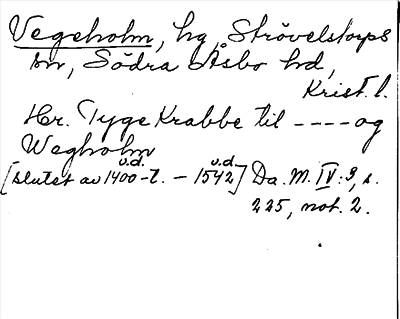 Vegeholm, hg, Strövelstorps
sn, Södra Åsbo hd,
Krist. l.
Hr. Tyge Krabbe til ---- og
Wegholm
u.d. u.d.
[slutet av 1400-t. - 1542] Da. M. IV: 3, s.
225, not. 2.